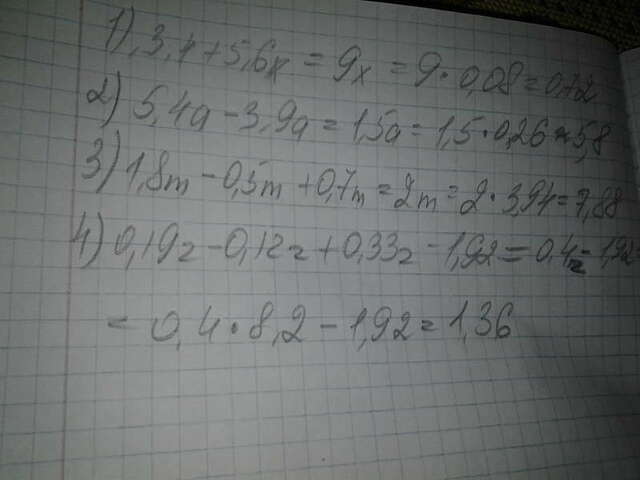 1) 3,4+5,6x = 9x = 9·0,08 = 0,72
2) 5,4a - 3,9a = 1,5a = 1,5·0,26 = 5,8
3) 1,8m - 0,5m + 0,7m = 2m = 2·3,94 = 7,88
4) 0,19z - 0,12z + 0,33z - 1,92 = 0,4z - 1,92=
= 0,4·8,2 - 1,92 = 1,36